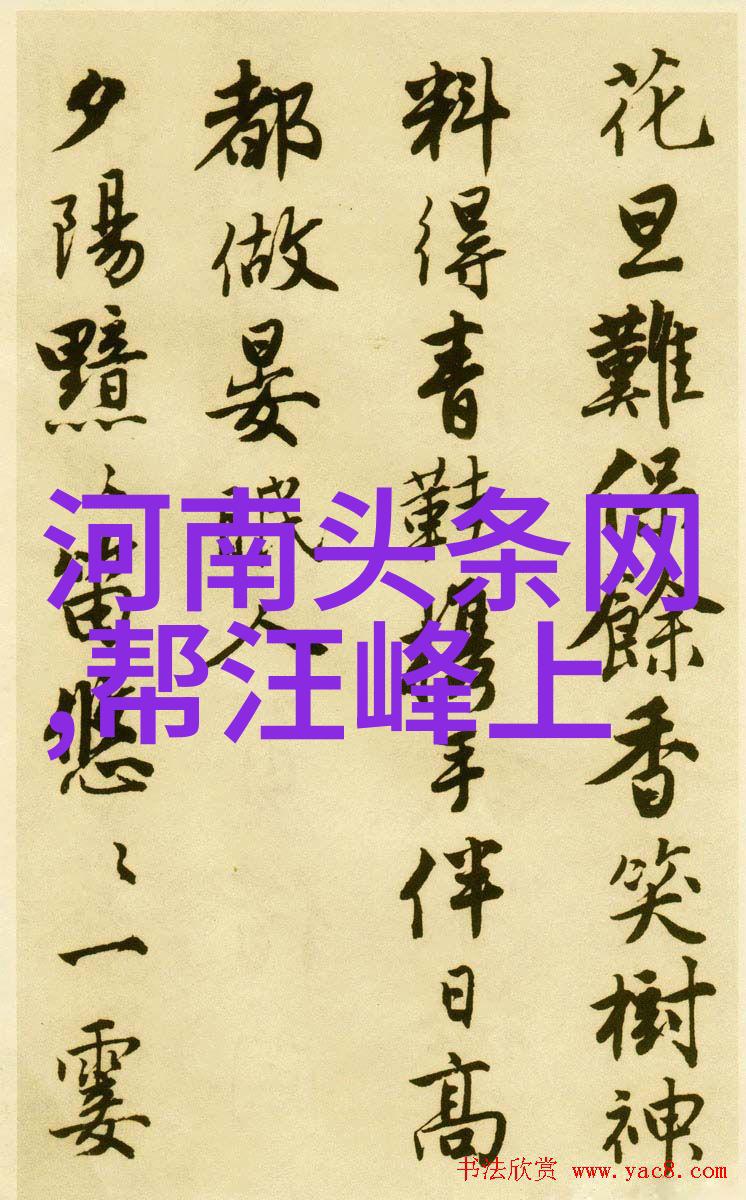 花旦難保餘香笑樹神
料得青鞋携手伴日高
都做晏眠人
夕陽黯〻笛悠〻一霎
河南头条网
,帮汪峰上
书法欣赏 www.yac8.com